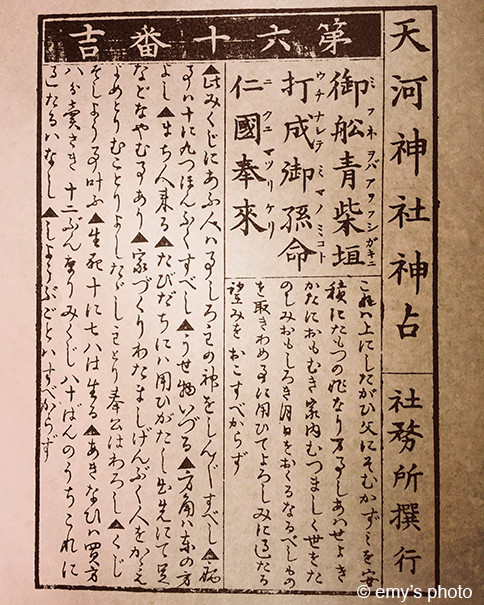 天河神社神占 社務所撰行
第六十番吉
御舩青柴垣
ミフネヲバアヲフシガキニ
打成御孫命
ウチナレテミマノミコト
仁國奉來
ニクニマツリケリ
これハ上にしたがひ父にそむかずミを安
穏にたもつの兆なり万事しあハせよき
かたにおもむき家内むつましく世をた
のしみおもしろき月日をおくるなるべしもの
を取きわめ事に用ひてよろしみに過たる
望みをおこすべからず
▲此みくじにあふ人ハ事しろ主の神をしんじすべし▲病
事ハ十に九つほんぶくすべし▲うせ物いづる▲方角ハ東の方
よし▲まち人来る▲たびだちにハ用ひがたし出先にて
などなやむ事あり▲家づくりわたましげんぷく人をかゝえ
よめとりむことりよしたゞし とり奉公はわろし▲くじ
そしよう事叶ふ▲生死十に七八は生る▲あきなひハ買方
賣さき十二ぶんなりみくじ八十ばんのうちこれに
過たるハなし▲しようぶごとハすべからず
© emy's photo